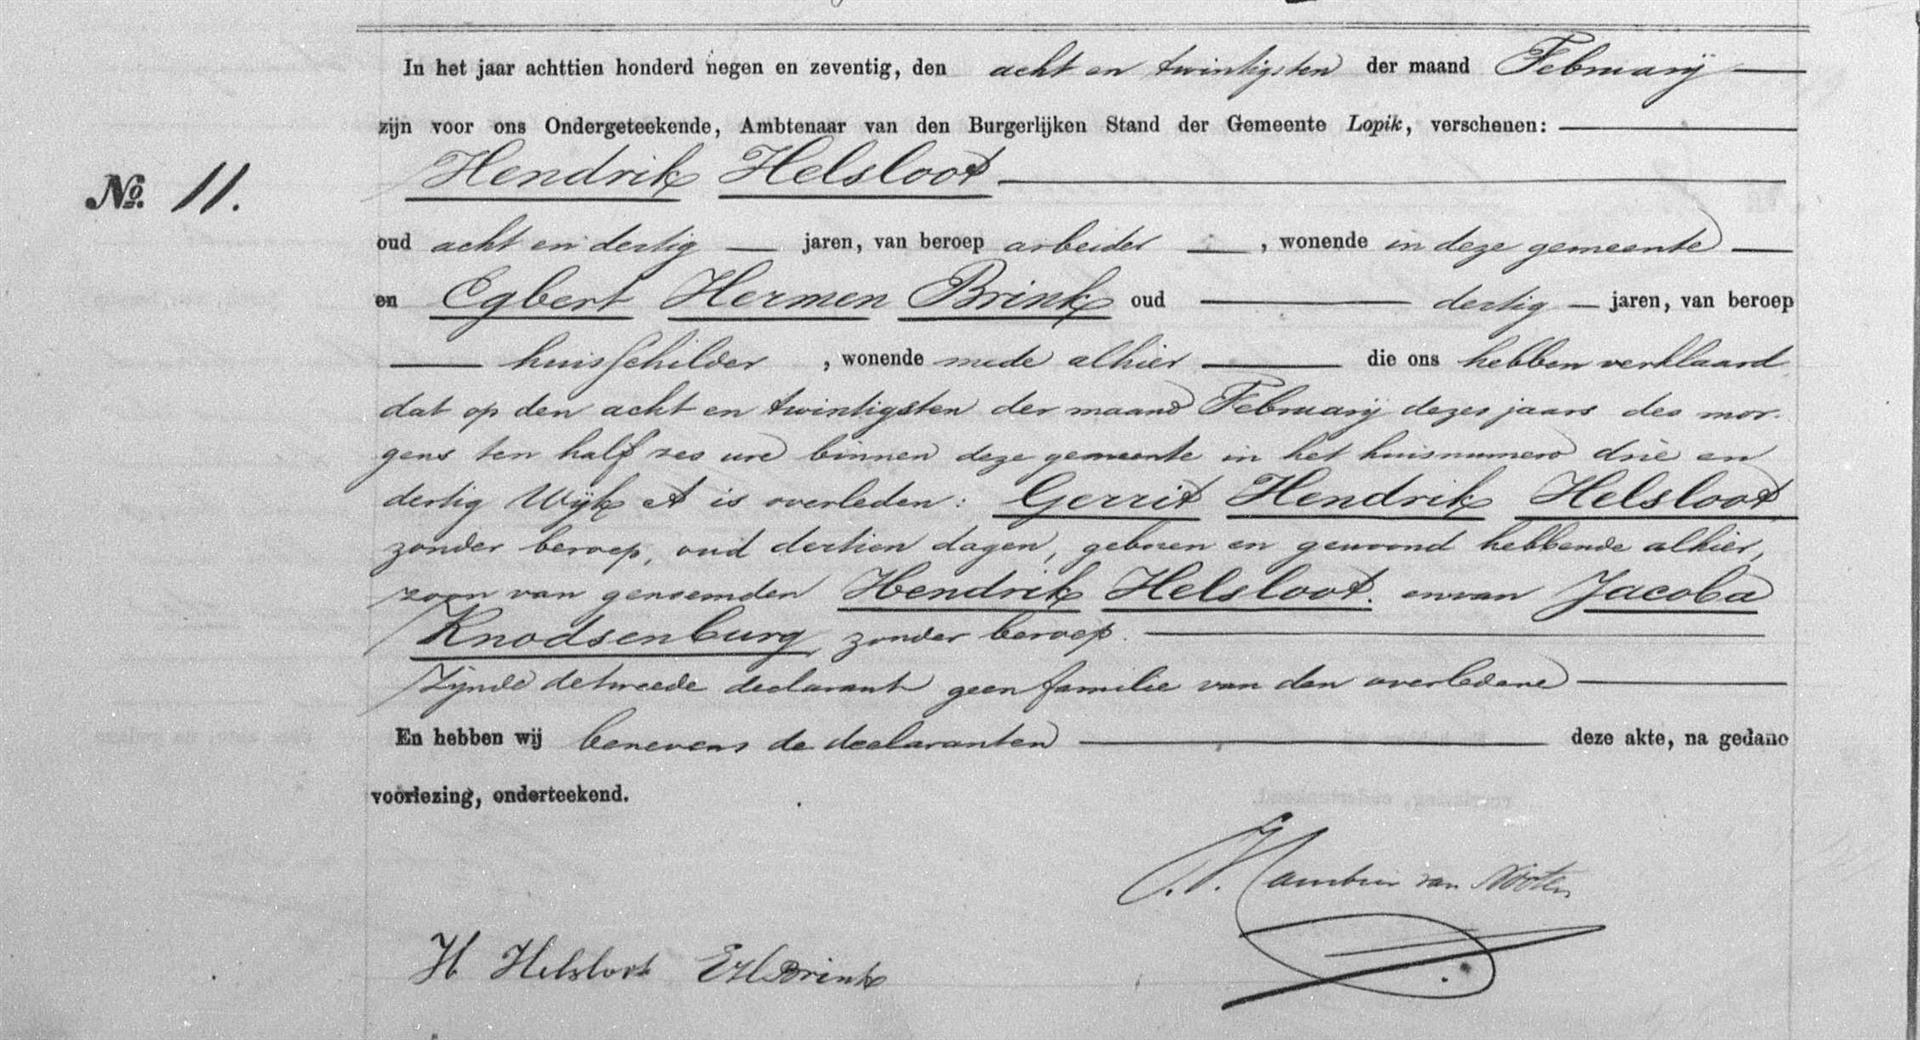 In het jaar achttien honderd negen en zeventig, den acht en twintigsten der maand Februarij
zijn voor ons Ondergeteekende, Ambtenaar van den Burgerlijken Stand der Gemeente Lopik, verschenen:
Hendrik Helsloot
No. 11.
oud acht en dertig jaren, van beroep arbeider, wonende in deze gemeente
en Egbert Hermen Brink oud dertig jaren, van beroep
huisschilder, wonende mede alhier die ons hebben verklaard
dat op den acht en twintigsten der maand Februarij dezes jaars des mor-
gens ten half zes ure binnen deze gemeente in het huisnumero drie en
dertig Wijk A is overleden: Gerrit Hendrik Helsloot
zonder beroep, oud dertien dagen, geboren en gewoond hebbende alhier,
zoon van genoemden Hendrik Helsloot. en van Jacoba
Knodsenburg, zonder beroep.
Zijnde de tweede declarant geen familie van den overledene
En hebben wij benevens de declaranten deze akte, na gedane
voorlezing, onderteekend.
van Nooten
H Helsloot EHBrink